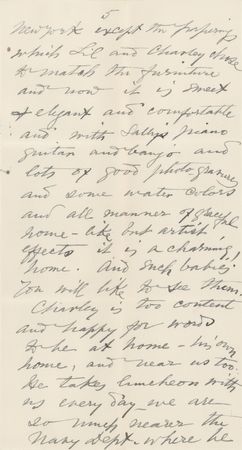 5
New York except the papering
which Lil and Charley chose
to match the furniture
and now it is sweet
& elegant and comfortable
and with Sally's piano
guitar and banjo and
lots of good photogravures
and some water colors
and all manner of
home-like but artistic
effects it is a charming
home. And such babies!
You will like to see them.
Charley is too content
and happy for words
to be at home - his own
home, and near us too.
He takes luncheon with
us every day - we are
so much nearer the
Navy Dept. where he